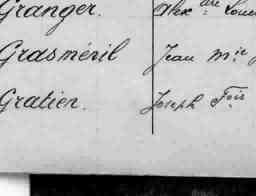 Granger. Alex.dre Louis
Grasménil Jean M.ie J
Gratien. Joseph F.ois